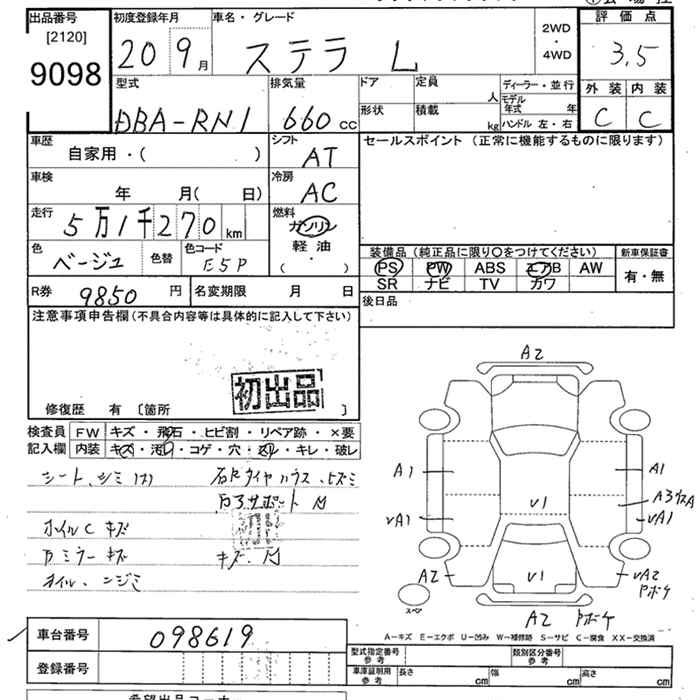 出品番号 初度登録年月 車名・グレード 評価点
[2120] 20 9月 ステラ L 2WD・4WD 3.5
9098 外装 内装
型式 排気量 ドア 定員 人 ディーラー・並行 C C
DBA-RN1 660cc 形状 積載 kg モデル年式 年 ハンドル 左・右
車歴 自家用・( ) シフト AT セールスポイント (正常に機能するものに限ります)
車検 年 月( 日) 冷房 AC
走行 5万1千270km 燃料 ガソリン 軽油 ( ・ )
色 ベージュ 色替 色コード E5P
装備品 (純正品に限り○をつけてください) 新車保証書
PS PW ABS エアB AW 有・無
SR ナビ TV カワ
R券 9850円 名変期限 月 日 後日品
注意事項申告欄(不具合内容等は具体的に記入して下さい)
初出品
修復歴 有 [箇所 ]
検査員 FW キズ・飛石・ヒビ割・リペア跡・×要
記入欄 内装 キズ・汚れ・コゲ・穴・スレ・キレ・破レ
シート、シミ
サポート
ホイルC キズ
ミラー キズ
キズ
オイル、ニジミ
A2
A1 A1
V1 A3
VA1 VA1
A2 V1 VA2
Pボケ
スペア A2 Pボケ
A-キズ E-エクボ U-凹み W-補修跡 S-サビ C-腐食 XX-交換済
車台番号 098619 型式指定番号 参考 類別区分番号 参考
登録番号 車庫証明用 参考 長さ cm 幅 cm 高さ cm
希望出品コーナー